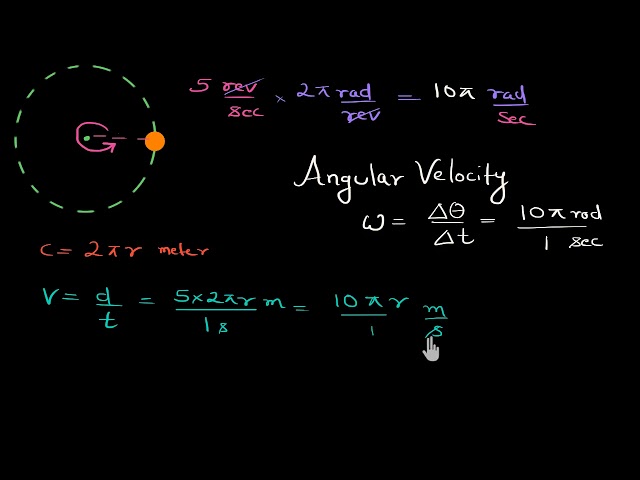 5 rev/sec × 2π rad/rev = 10π rad/sec
Angular Velocity
ω = Δθ/Δt = 10π rad/1 sec
C = 2πr meter
V = d/t = 5×2πr m/1s = 10πr/1 m/s